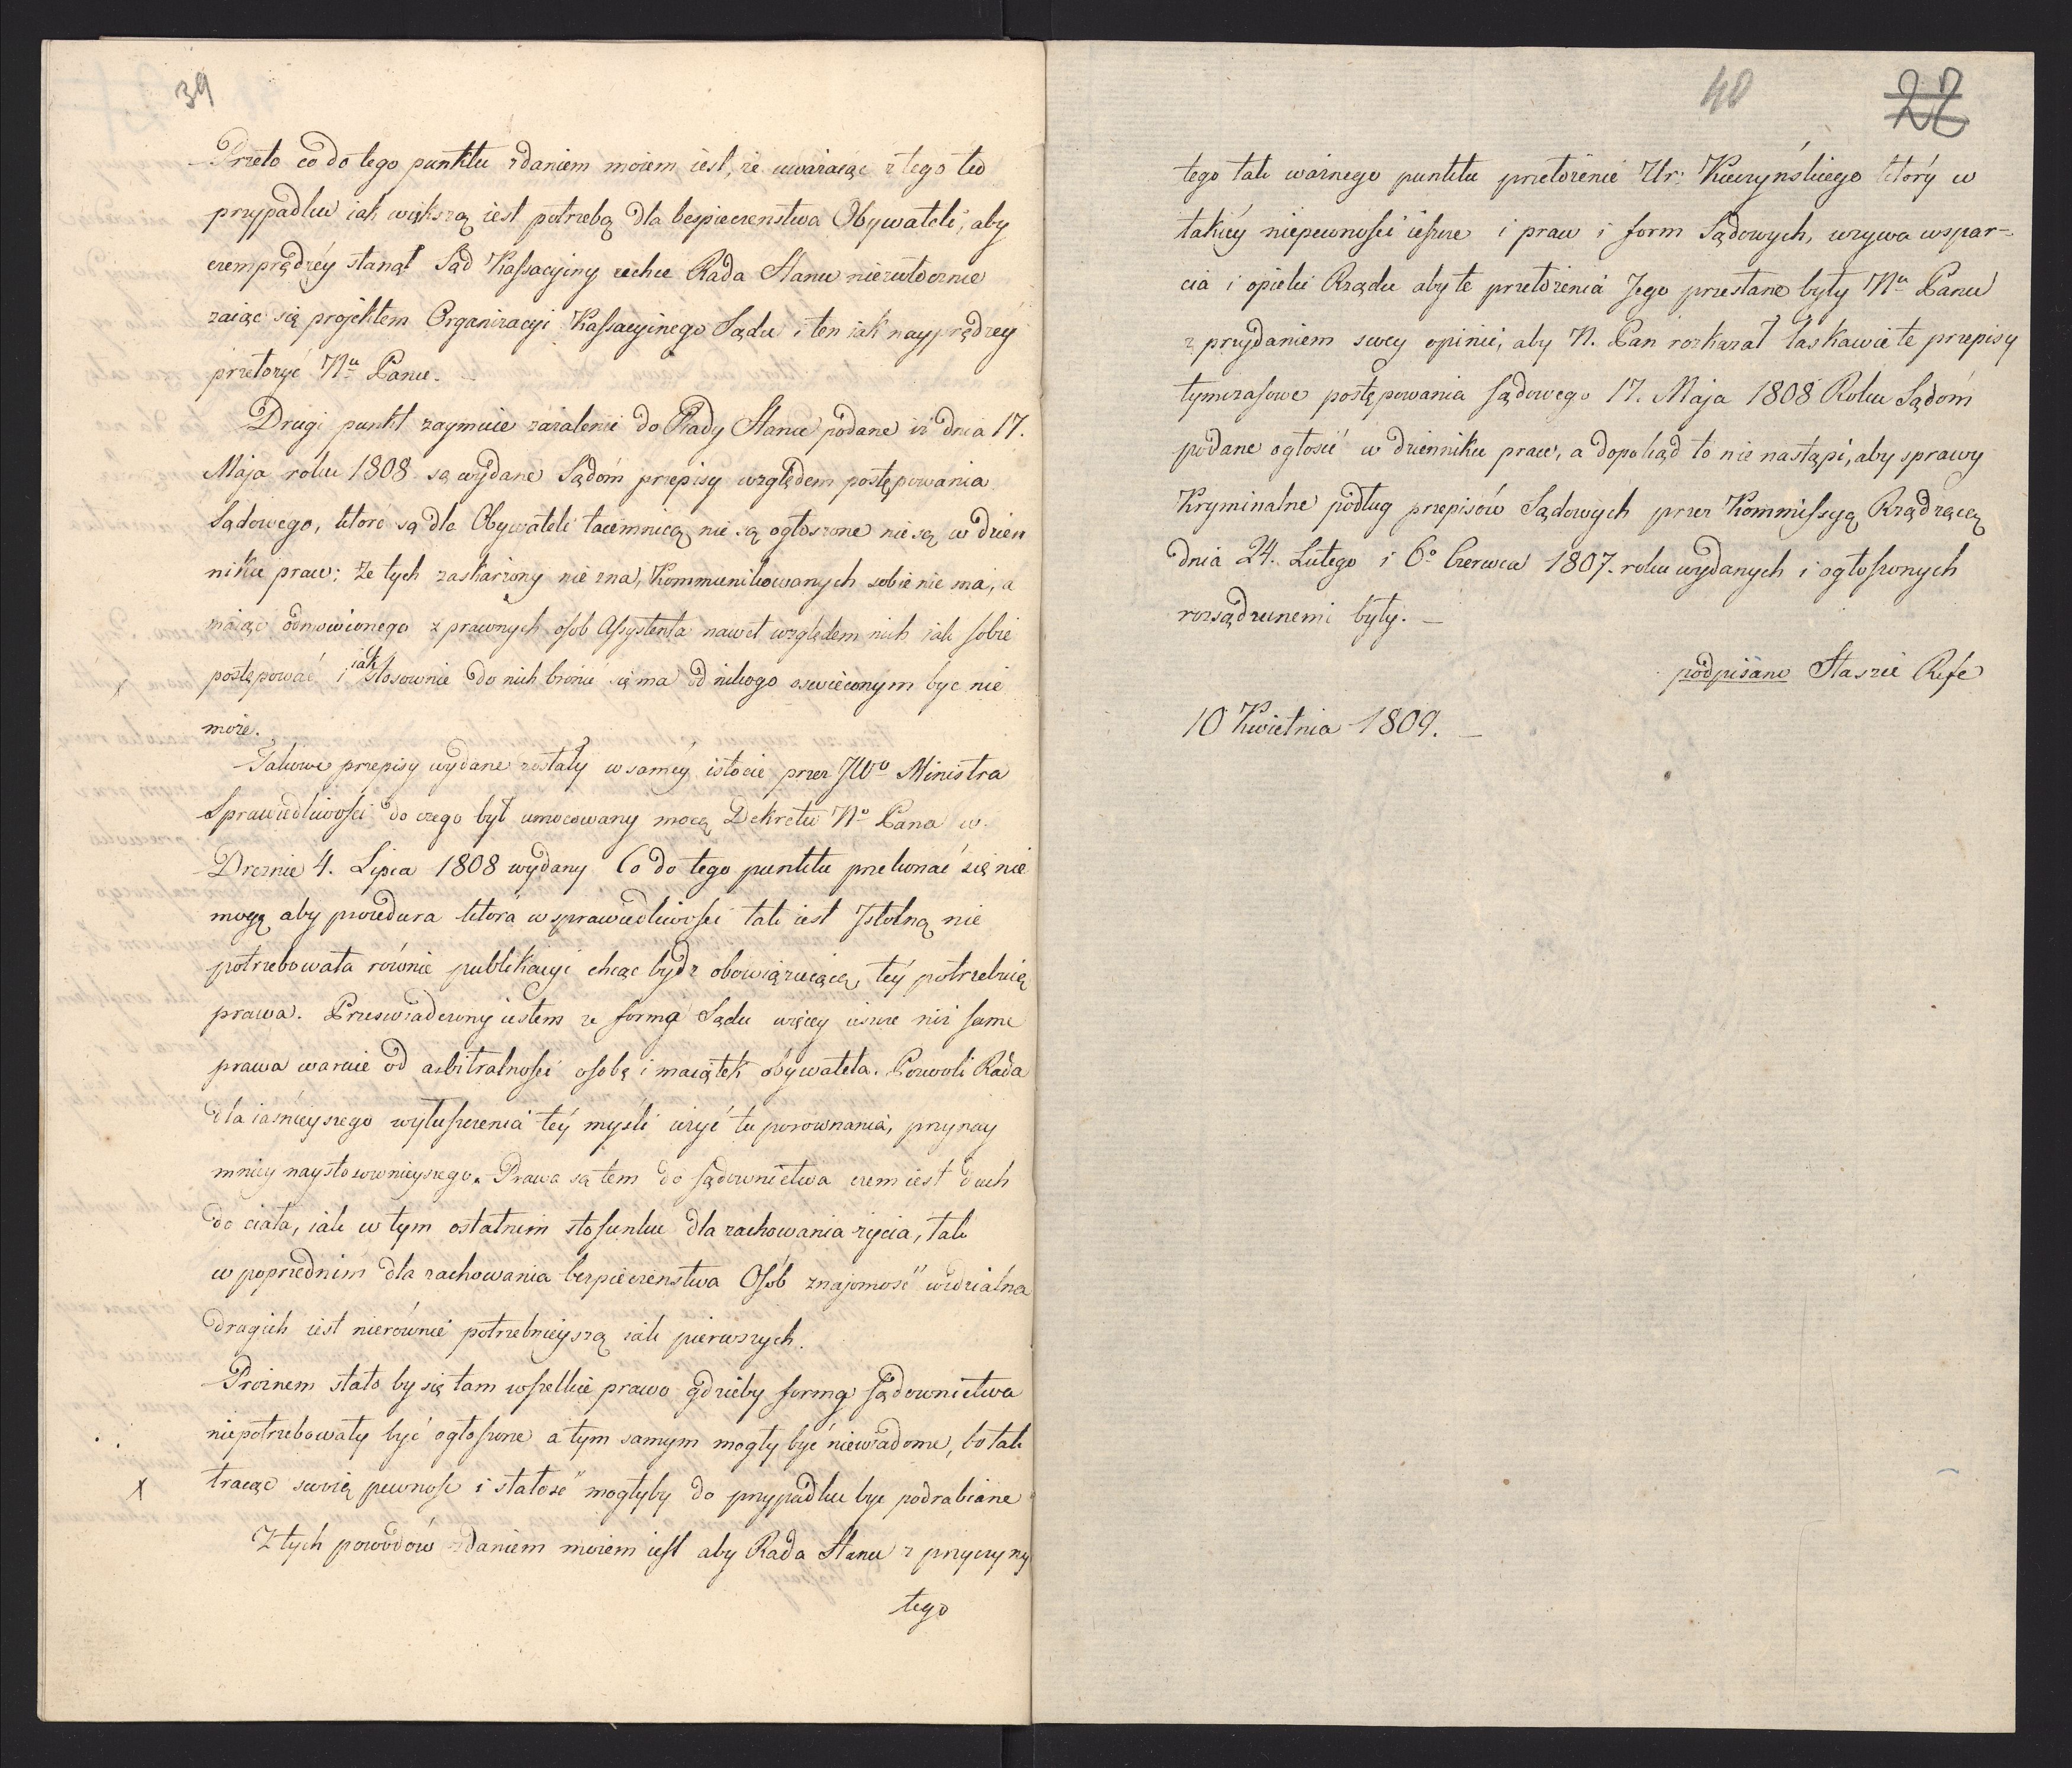 39
Przeto co do tego punktu zdaniem moiem iest, że uważaiąc z tego tu
przypadku iak większą iest potrzebą dla bespieczenstwa Obywateli, aby
czemprędzéy stanął Sąd Kassacyiny zechce Rada Stanu niezwłocznie
zaiąć się projektem Organizacyi Kassacyinego Sądu i ten iak nayprędzey
przełożyć Nu Panu. –
Drugi punkt zaymuie zażalenie do Rady Stanu podane iż dnia 17.
Maja roku 1808 są wydane Sądóm przepisy względem postępowania
Sądowego, które są dla Obywateli taiemnicą, nie są ogłoszone nie są w dzien
niku praw; że tych zaskarżony nie zna, Kommunikowanych sobie nie ma, a
maiąc odmowionego z prawnych osob Assystenta nawet względem nich iak sobie
postępować i iak stosownie do nich bronić się ma od nikogo oswieconym byc nie
może.
Takowe przepisy wydane zostały w saméy istocie przez JWo Ministra
Sprawiedliwości do czego był umocowany mocą Dekretu No Pana w
Dreznie 4. Lipca 1808 wydany Co do tego punktu przekonać się nie
mogę aby procedura która w sprawiedliwości tak iest Istotną nie
potrzebowała równie publikacyi chcąc bydz obowiązuiącą, téy potrzebuią
prawa. Przeswiadczony iestem że formą Sądu więcey ieszcze niż same
prawa waruie od arbitralności osobę i maiątek obywatela. Pozwoli Rada
dla iaśnieyszego wyłuszczenia téy myśli użyć tu porownania, przynay
mniey naystosownieyszego. Prawa są tem do sądownictwa czem iest duch
do ciała, iak w tym ostatnim stosunku dla zachowania życia, tak
w poprzednim dla zachowania bezpieczenstwa Osób znajomość widzialna
drugich iest nierównie potrzebnieyszą iak pierwszych.
Próżnem stało by się tam wszelkie prawo gdzieby formy sądownictwa
niepotrzebowały być ogłoszone a tym samym mogły być niewiadome, bo tak
tracąc swoią pewnosc i stałość mogłyby do przypadku byc podrabiane
Z tych powodów zdaniem moiem iest aby Rada Stanu z przyczyny
tego
40
tego tak ważnego punktu przełożenie Ur: Kuczyńskiego który w
takiéy niepewności ieszcze i praw i form Sądowych, wzywa wspar-
cia i opieki Rządu aby te przełożenia Jego przesłane były Nu Panu
z przydaniem swey opinii, aby N. Pan rozkazał łaskawie te przepisy
tymczasowe postępowania sądowego 17. Maja 1808 Roku Sądóm
podane ogłosić w dzienniku praw, a dopokąd to nie nastąpi, aby sprawy
Kryminalne podług przepisów Sądowych przez Kommissyą Rządzącą
dnia 24. Lutego i 6o Czerwca 1807. roku wydanych i ogłoszonych
rozsądzunemi były. –
podpisano Staszic Refe
10 Kwietnia 1809. –